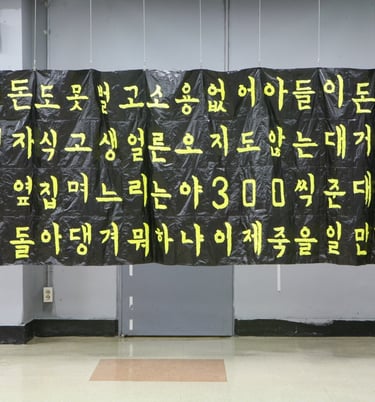 돈도못벌고소용없어아들이돈
자식고생얼른으지도안는대거
옆집며느리는야300씩준대
돌아댕겨뭐하나이제죽을일만